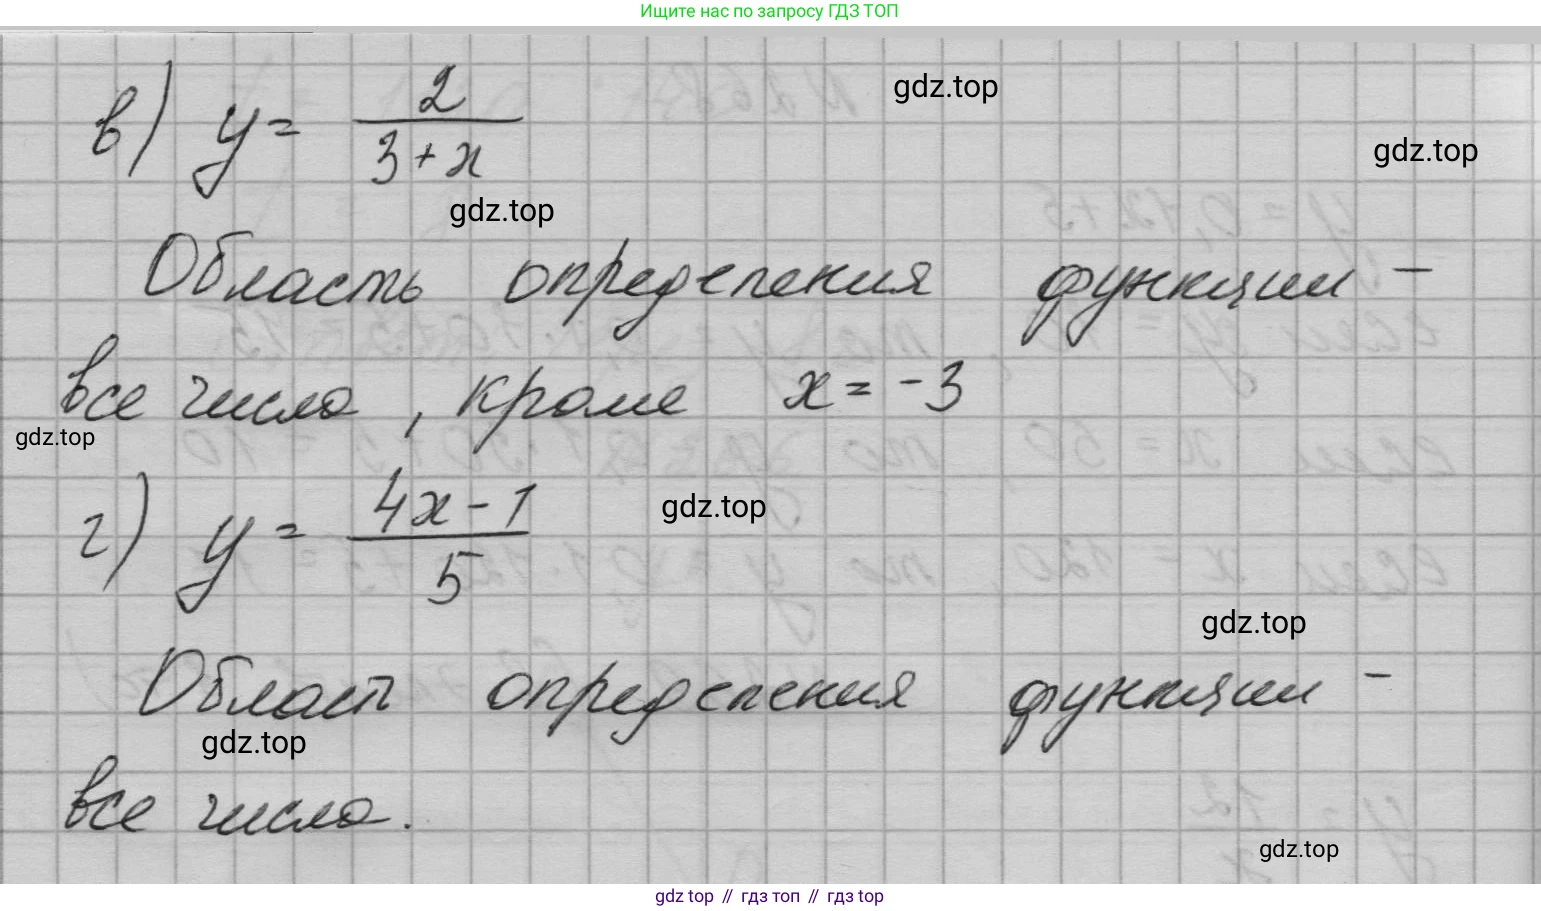 Ищите нас по запросу ГДЗ ТОП
в) y = 2 / (3 + x)
gdz.top
gdz.top
gdz.top
Область определения функции –
все числа, кроме x = -3
gdz.top
г) y = (4x - 1) / 5
gdz.top
gdz.top
Област определения функции –
gdz.top
все числа.
gdz.top
gdz top // гдз топ // гдз top